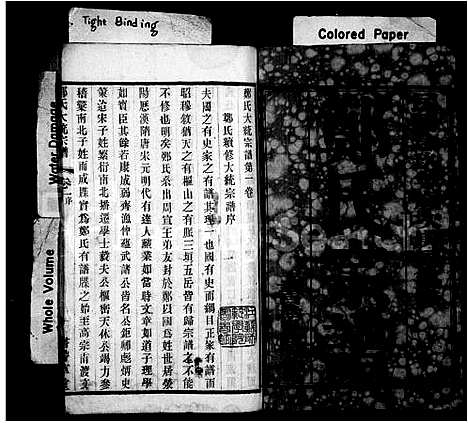 Tight Binding
Colored Paper
Water Damage
Whole Volume
鄭氏大統宗譜第一卷
鄭氏續修大統宗譜序
夫國之有史家之有譜其理一也國有史而綱目正家有譜而
昭穆敘猶天之有樞山之有脈三垣五岳皆有歸宗譜之不能
不修也明矣鄭氏系出周宣王弟友封於鄭以國為姓世居滎
陽歷漢隋唐宋元明代有達人勳業如當時文章如道子理學
如賓臣其餘若康成弱齊漁仲蘊武諸公尚名公鉅師彪炳史
策迨宋子姓繁衍南北播遷學士毅夫公樞密天休公竭力參
稽彙南北子姓而成牒實為鄭氏有譜牒之始至高宗南渡文
鄭氏大統宗譜 卷 序